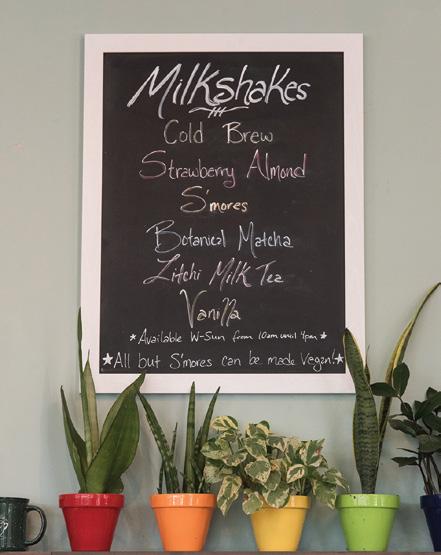 Milkshakes
Cold Brew
Strawberry Almond
S'mores
Botanical Matcha
Litchi Milk Tea
Vanilla
*Available W-Sun from 10am until 4pm*
★All but S'mores can be made Vegan!★